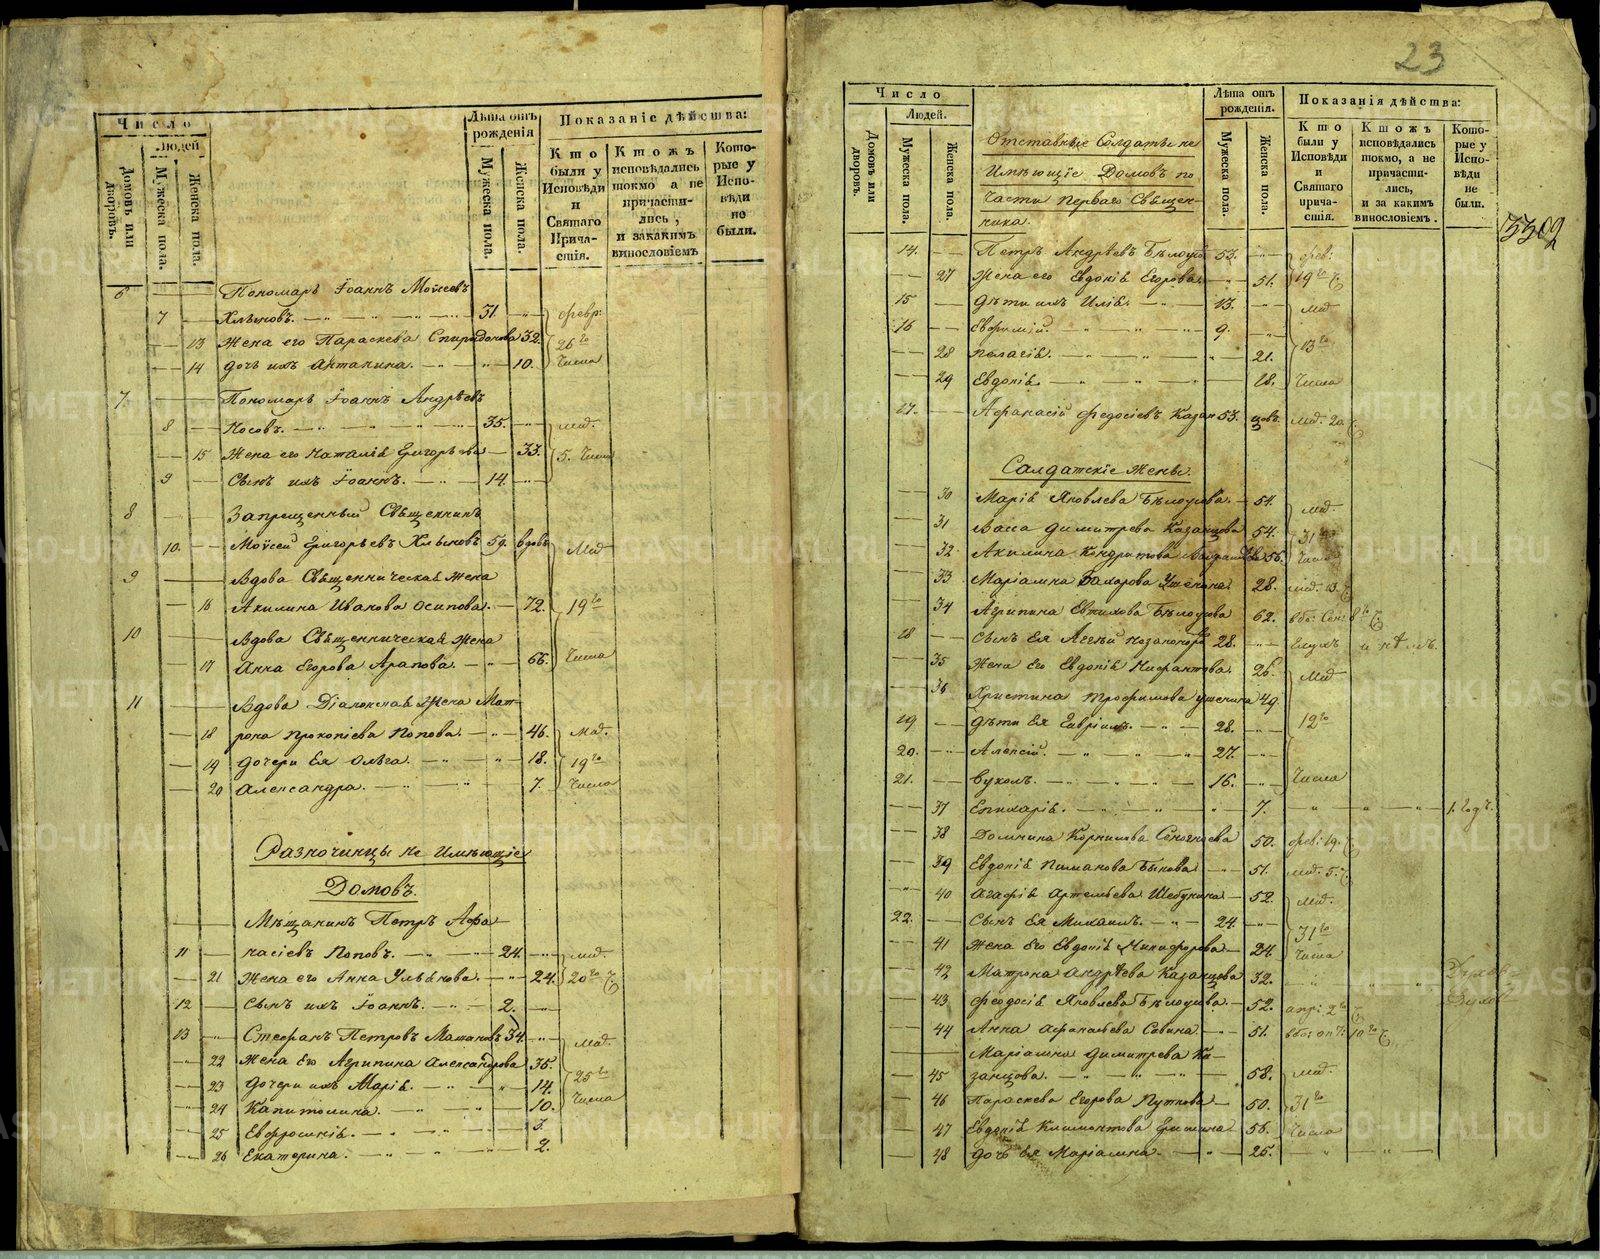 Число
Людей
Домовъ или дворовъ.
Мужеска пола.
Женска пола.
Лѣта отъ рожденія
Мужеска пола.
Женска пола.
Показаніе дѣйства:
Кто были у Исповѣди и Святаго Прича-стія.
Ктожъ исповѣдались токмо а не причасти-лись, и закакимъ винословіемъ
Кото-рые у Испо-вѣди не были.
6 Пономарь Іоаннъ Моѵсеевъ
7 Хлыновъ. 31. февр:
13 Жена его Параскева Спиридонова 32. 26го
14 дочь ихъ Антонина. 10. Числа
7. Пономарь Іоаннъ Андрѣевъ
8 Носовъ. 35. мар.
15 Жена его Наталія Григорьева 33. 5. Числа
9 Сынъ ихъ Іоаннъ. 14.
8 Запрещенный Священникъ
10. Моѵсей Григорьевъ Хлыновъ 59. вдовъ Мар
9 Вдова Священническая жена
16 Акилина Иванова Осипова. 72. 19го
10 Вдова Священническая жена
17 Анна Егорова Арапова. 66. Числа
11 Вдова Діаконская Жена Мат-
18 рона Прокопіева Попова. 46. Мар.
19 дочери Ея Ольга. 18. 19го
20 Александра. 7. Числа
Разночинцы не Имѣющіе
Домовъ.
Мѣщанинъ Петръ Афа-
11 насіевъ Поповъ. 24. мар.
21 Жена его Анна Ульянова. 24. 20го
12 Сынъ ихъ Іоаннъ. 2.
13 Стефанъ Петровъ 34. Мар.
22 Жена Его Агрипина Александрова 35.
23 дочери ихъ Марія. 14. 25го
24 Капитолина. 10. Числа
25 Евфросинія. 3.
26 Екатерина. 2.
23
Число
Людей.
Домовъ или дворовъ.
Мужеска пола.
Женска пола.
Отставные Солдаты не
Имѣющіе Домовъ по
Части перваго Священ-
ника.
Лѣта отъ рожденія.
Мужеска пола.
Женска пола.
Показанія дѣйства:
Кто были у Исповѣди и Святаго прича-стія.
Ктожъ исповѣдались токмо, а не причасти-лись, и за какимъ винословіемъ.
Кото-рые у Испо-вѣди не были.
14. Петръ Андрѣевъ 53. фев:
27 Жена его Евдокія Егорова. 51. 19го
15 дѣти ихъ Илія. 13. мар
16 Евфимій. 9.
28 Пелагія. 21. 13го
29 Евдокія. 18. Числа
17. Афанасій Федосіевъ Казан 53. цовъ. мар. 20.
Солдатскіе Жены.
30 Марія Яковлева Бѣлоусова. 54. мар
31 Васса Димитрева Казанцова 54. 31го
32 Акилина Кондратова 56. Числа
33 Маріамна Захарова Ушенина 28. мар. 13.
34 Агрипина Евтихова Бѣлоусова 62.
18 Сынъ Ея 28.
35 Жена Его Евдокія Нифантова. 26. Мар
36 Христина Трофимова Ушенина 49.
19 дѣти Ея Гавріилъ. 28. 12го
20. Алексій. 27.
21. Вуколъ. 16. Числа
37 Епихарія. 7. 1. годъ.
38 Домнина Корнилова 50. фев: 19.
39 Евдокія Пиманова Быкова 51. мар. 5.
40 Агафія Артемьева Шебунина 52. мар.
22. Сынъ Ея Михаилъ. 24. 31го
41 Жена Его Евдокія Никифорова 24. Числа
42 Матрона Андрѣева Казанцова 32.
43. Феодосія Яковлева Бѣлоусова. 52. апр: 2го
44 Анна Афанасьева Савина 51. 10го
Маріамна Димитрева Ка-
45 занцова. 58. мар.
46 Параскева Егорова Путкова 50. 31го
47 Евдокія Климонтова 56. Числа
48 дочь ея Маріамна. 25.